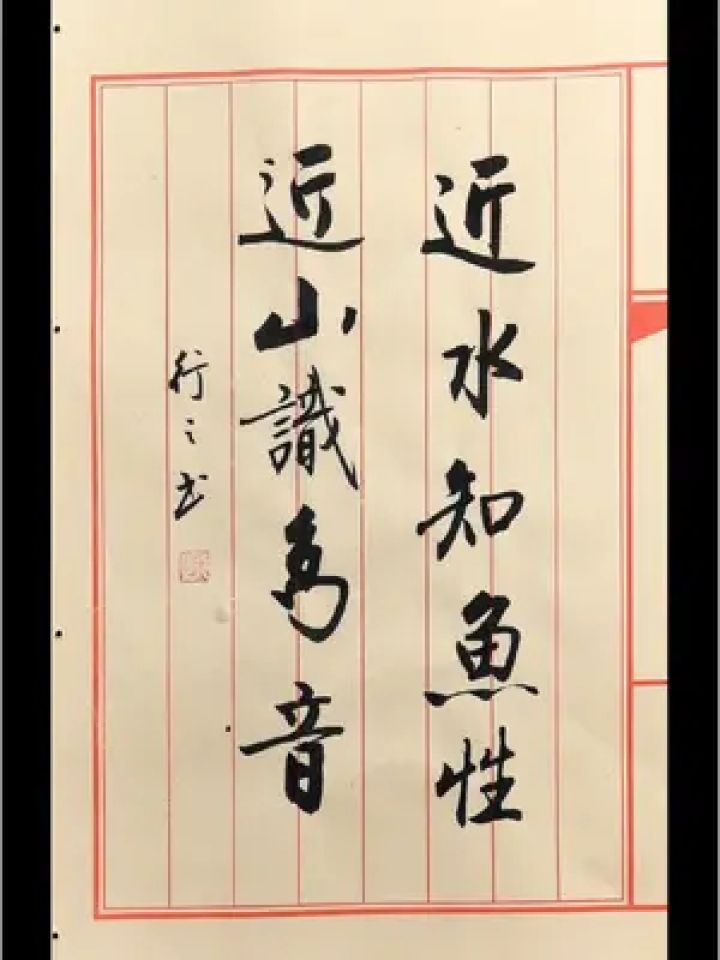 近水知魚性
近山識鳥音
行之书